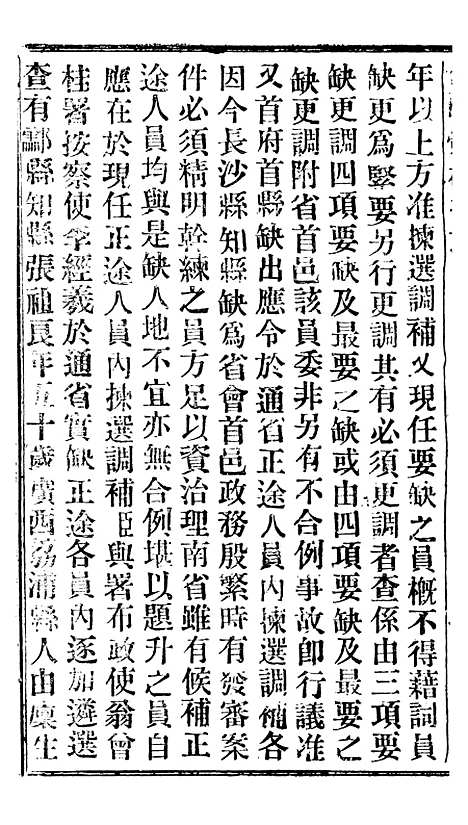 年以上方准揀選調補又現任要缺之員概不得藉詞員
缺更爲緊要另行更調其有必須更調者查係由三項要
缺更調四項要缺及最要之缺或由四項要缺及最要之
缺更調附省首邑該員委非另有不合例事故卽行議准
又首府首縣缺出應令於通省正途人員內揀選調補各
因今長沙縣知縣缺爲省會首邑政務殷繁時有發審案
件必須精明幹練之員方足以資治理南省雖有候補正
途人員均與是缺人地不宜亦無合例堪以題升之員自
應在於現任正途人員內揀選調補臣與署布政使翁曾
桂署按察使李經羲於通省實缺正途各員內逐加遴選
查有酃縣知縣張祖良年五十歲廣西荔浦縣人由廩生